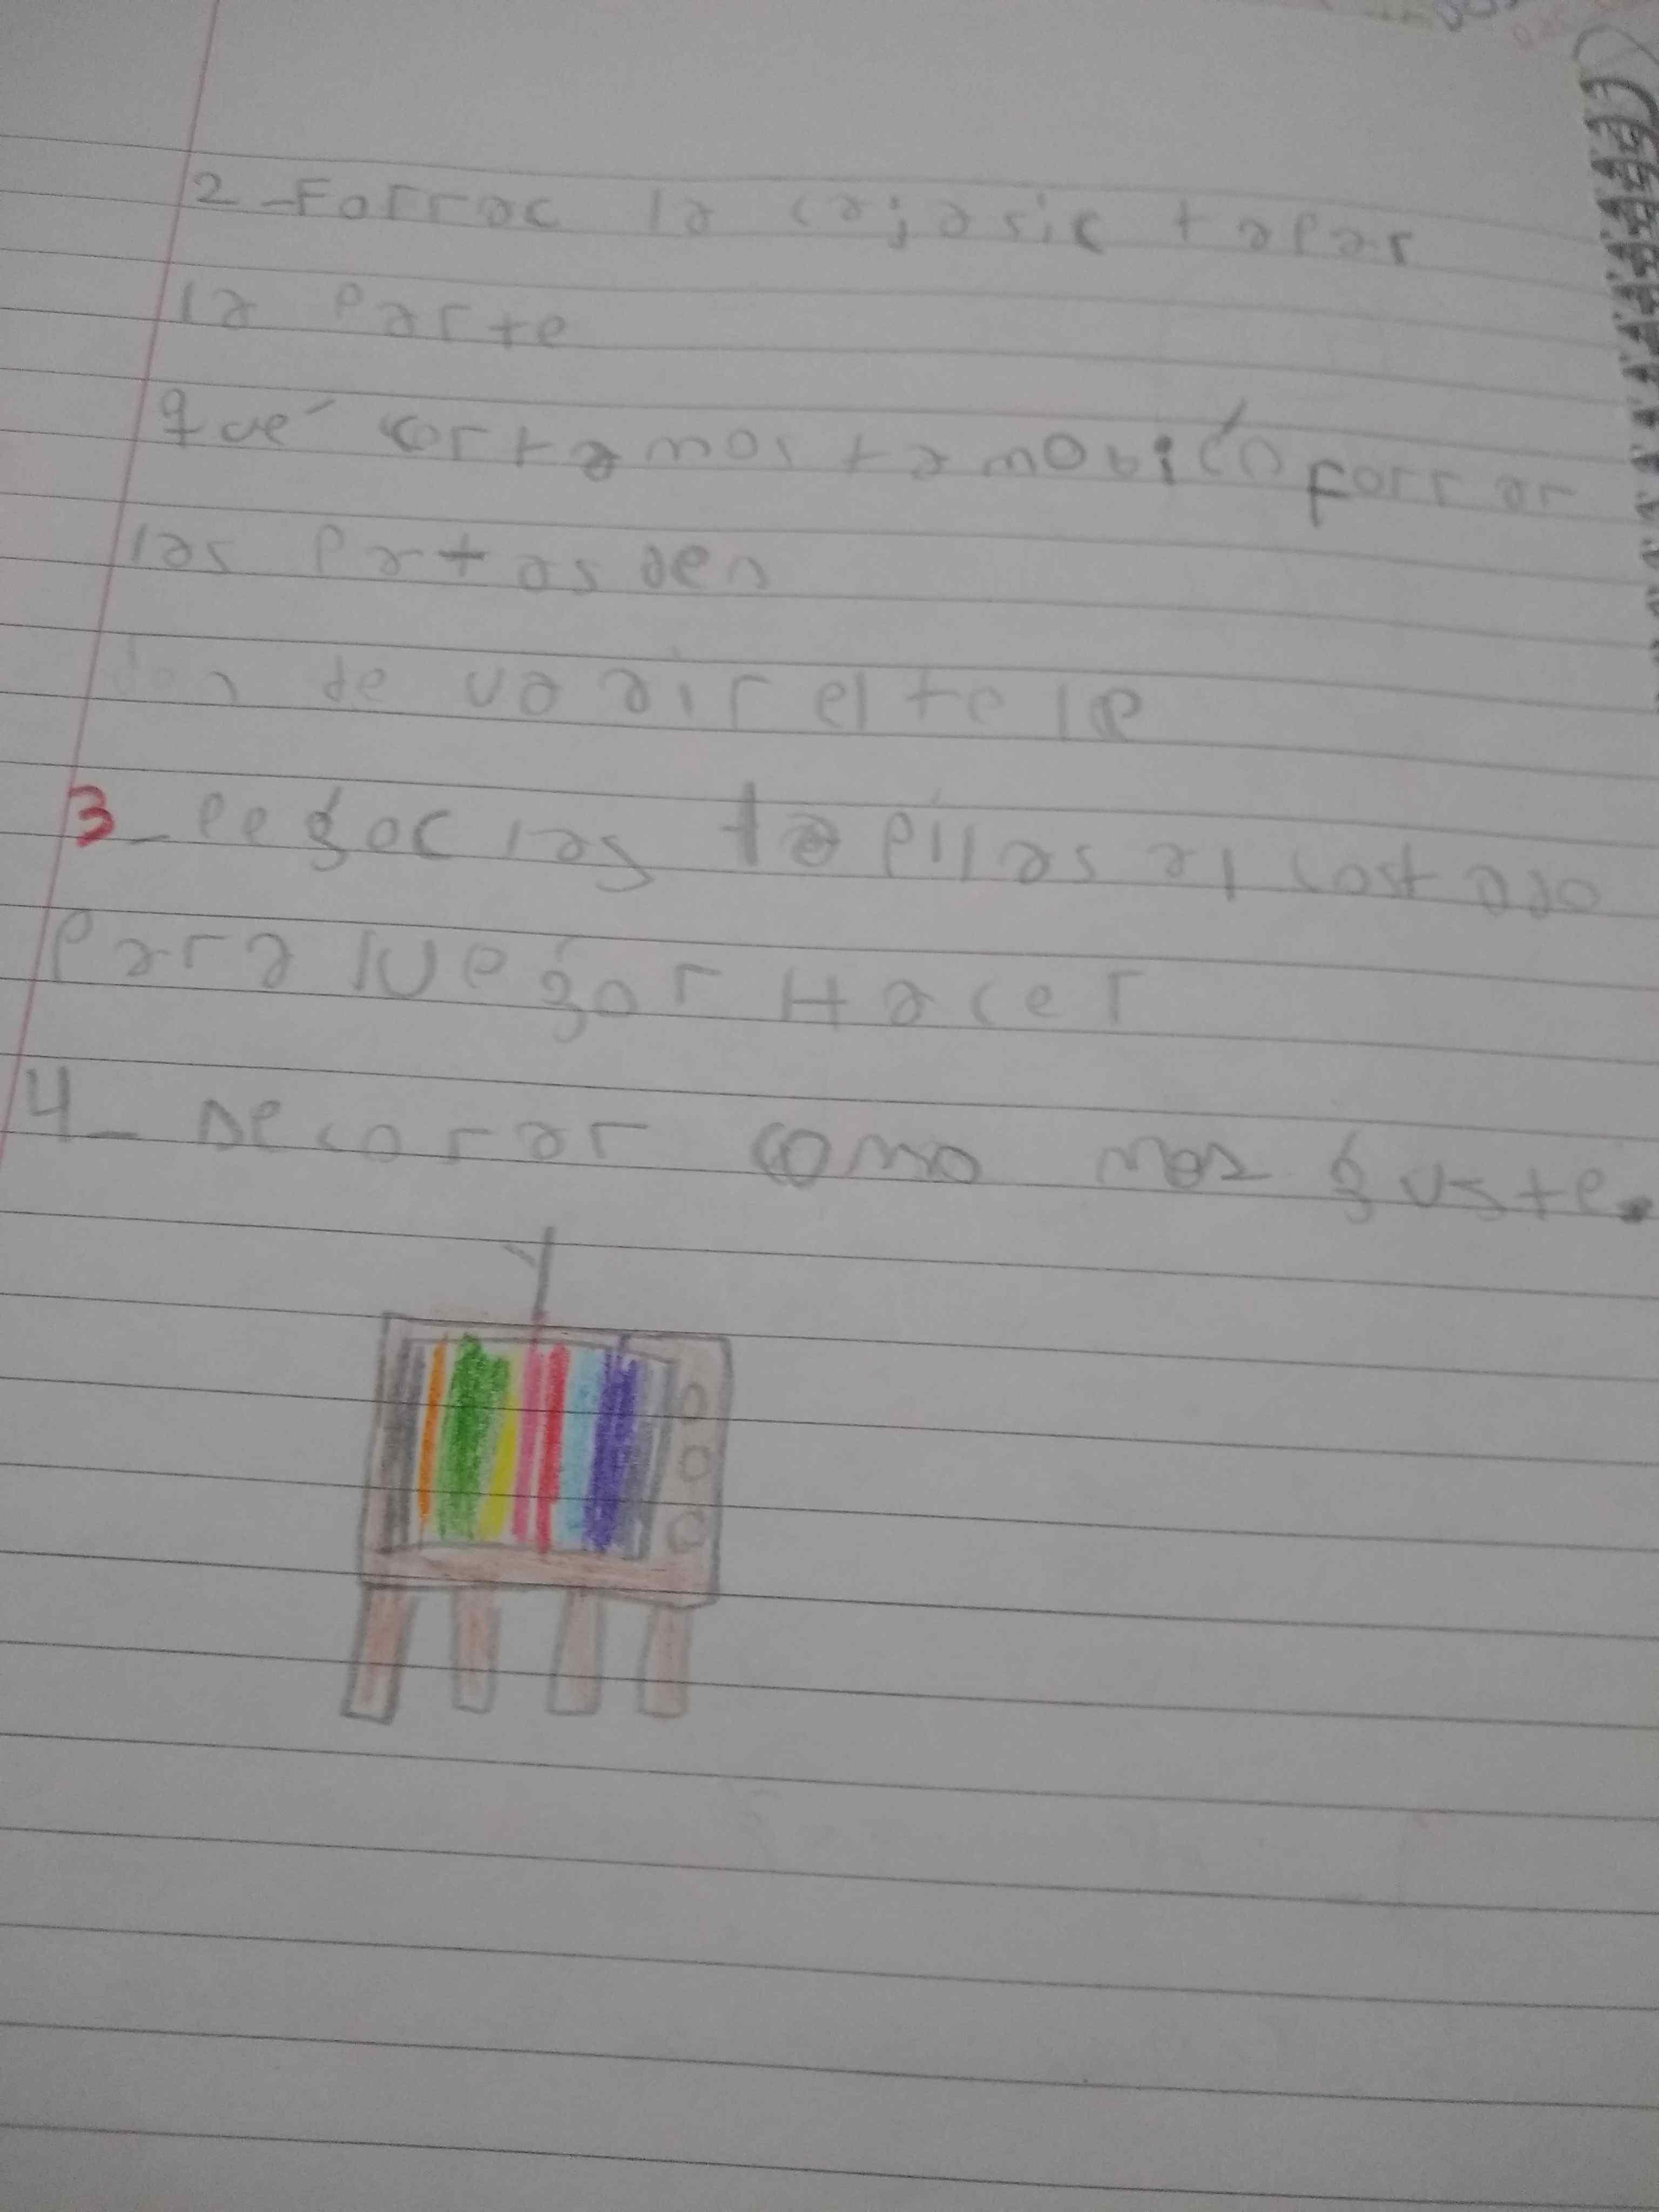 2-Forrac la cajasic tapar
la parte
qué cortamos tamovico forrar
las patas den
don de va air el tele
3_ pegoc las tapillas al costado
para luegor Hacer
4_ Decorar como mas guste.